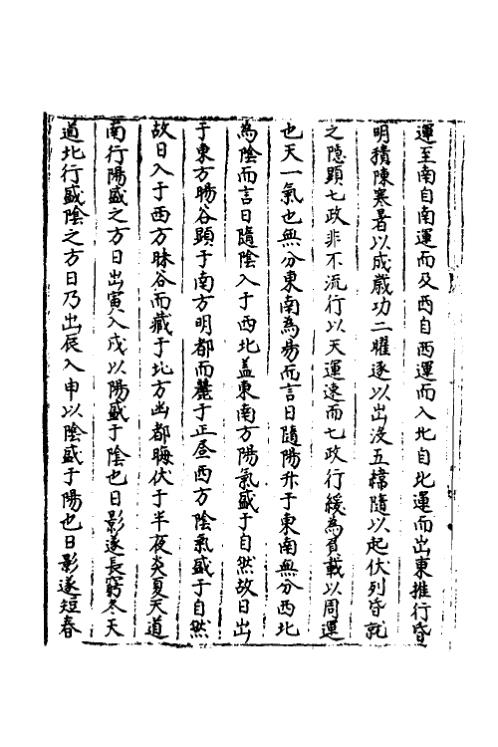 運至南自南運而及西自西運而入北自北運而出東推行昏
明積陳寒暑以成歲功二曜逐以出沒五緯隨以起伏列皆就
之隱顯七政非不流行以天運速而七政行緩為負載以周運
也天一氣也無分東南為昜而言日隨陽升于東南無分西北
為陰而言日隨陰入于西北盖東南方陽氣盛于自然故日出
于東方暘谷顕于南方明都而麗于正昼西方陰氣盛于自然
故日入于西方昧谷而藏于北方幽都晦伏于半夜炎夏天道
南行陽盛之方日出寅入戌以陽盛于陰也日影遂長窮冬天
道北行盛陰之方日乃出辰入申以陰盛于陽也日影遂短春